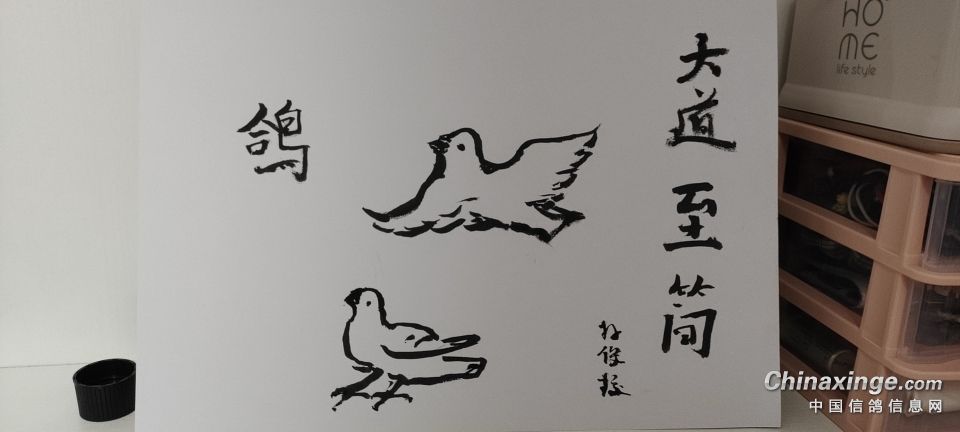 大道至简
鸽
HO
ME
life style
Chinaxinge.com
中国信鸽信息网